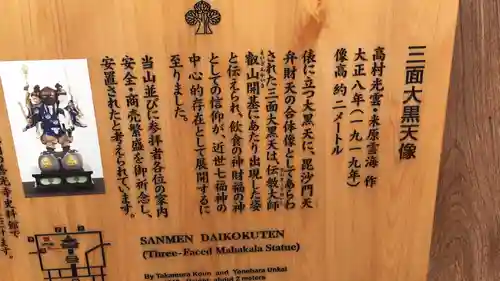 三面大黒天像
高村光雲・米原雲海 作
大正八年(一九一九年)
像高 約二メートル
俵に立つ大黒天に、毘沙門天
弁財天の合体像としてあらわ
された三面大黒天は、伝教大師
叡山開基にあたり出現した姿
と伝えられ、飲食の神財福の神
としての信仰が、近世七福神の
中心的存在として展開するに
至りました。
当山並びに参拝者各位の家内
安全・商売繁盛を御祈念し、
安置されたと考えられています。
善光寺史料館で
ます。
SANMEN DAIKOKUTEN
(Three-Faced Mahakala Statue)
By Takamura Koun and Yonehara Unkai
Height: about 2 meters